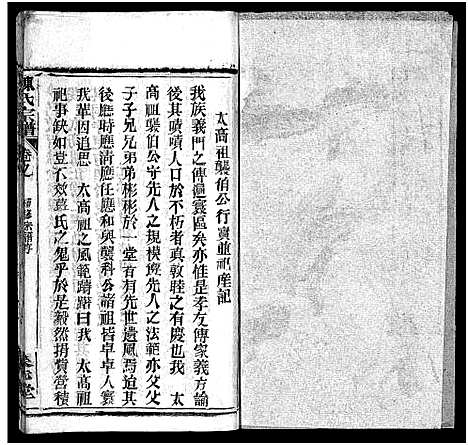 太高祖襲伯公行實並祀產記
我族義門之傳遍寰區矣亦惟是孝友傳家義方諭
後其嘖嘖人口於不朽者真敦睦之有慶也我 太
高祖襲伯公守先人之規模遵先人之法範亦父父
子子兄兄弟弟彬彬於一堂者有先世遺風焉迨其
後應時應清應任應和與襲科公諸祖皆卓卓人寰
我輩因追思 太高祖之風範躊躇曰我 太高祖之
祀事缺如豈不效莫氏之鬼乎於是毅然捐貲營積
陳氏宗譜
卷之